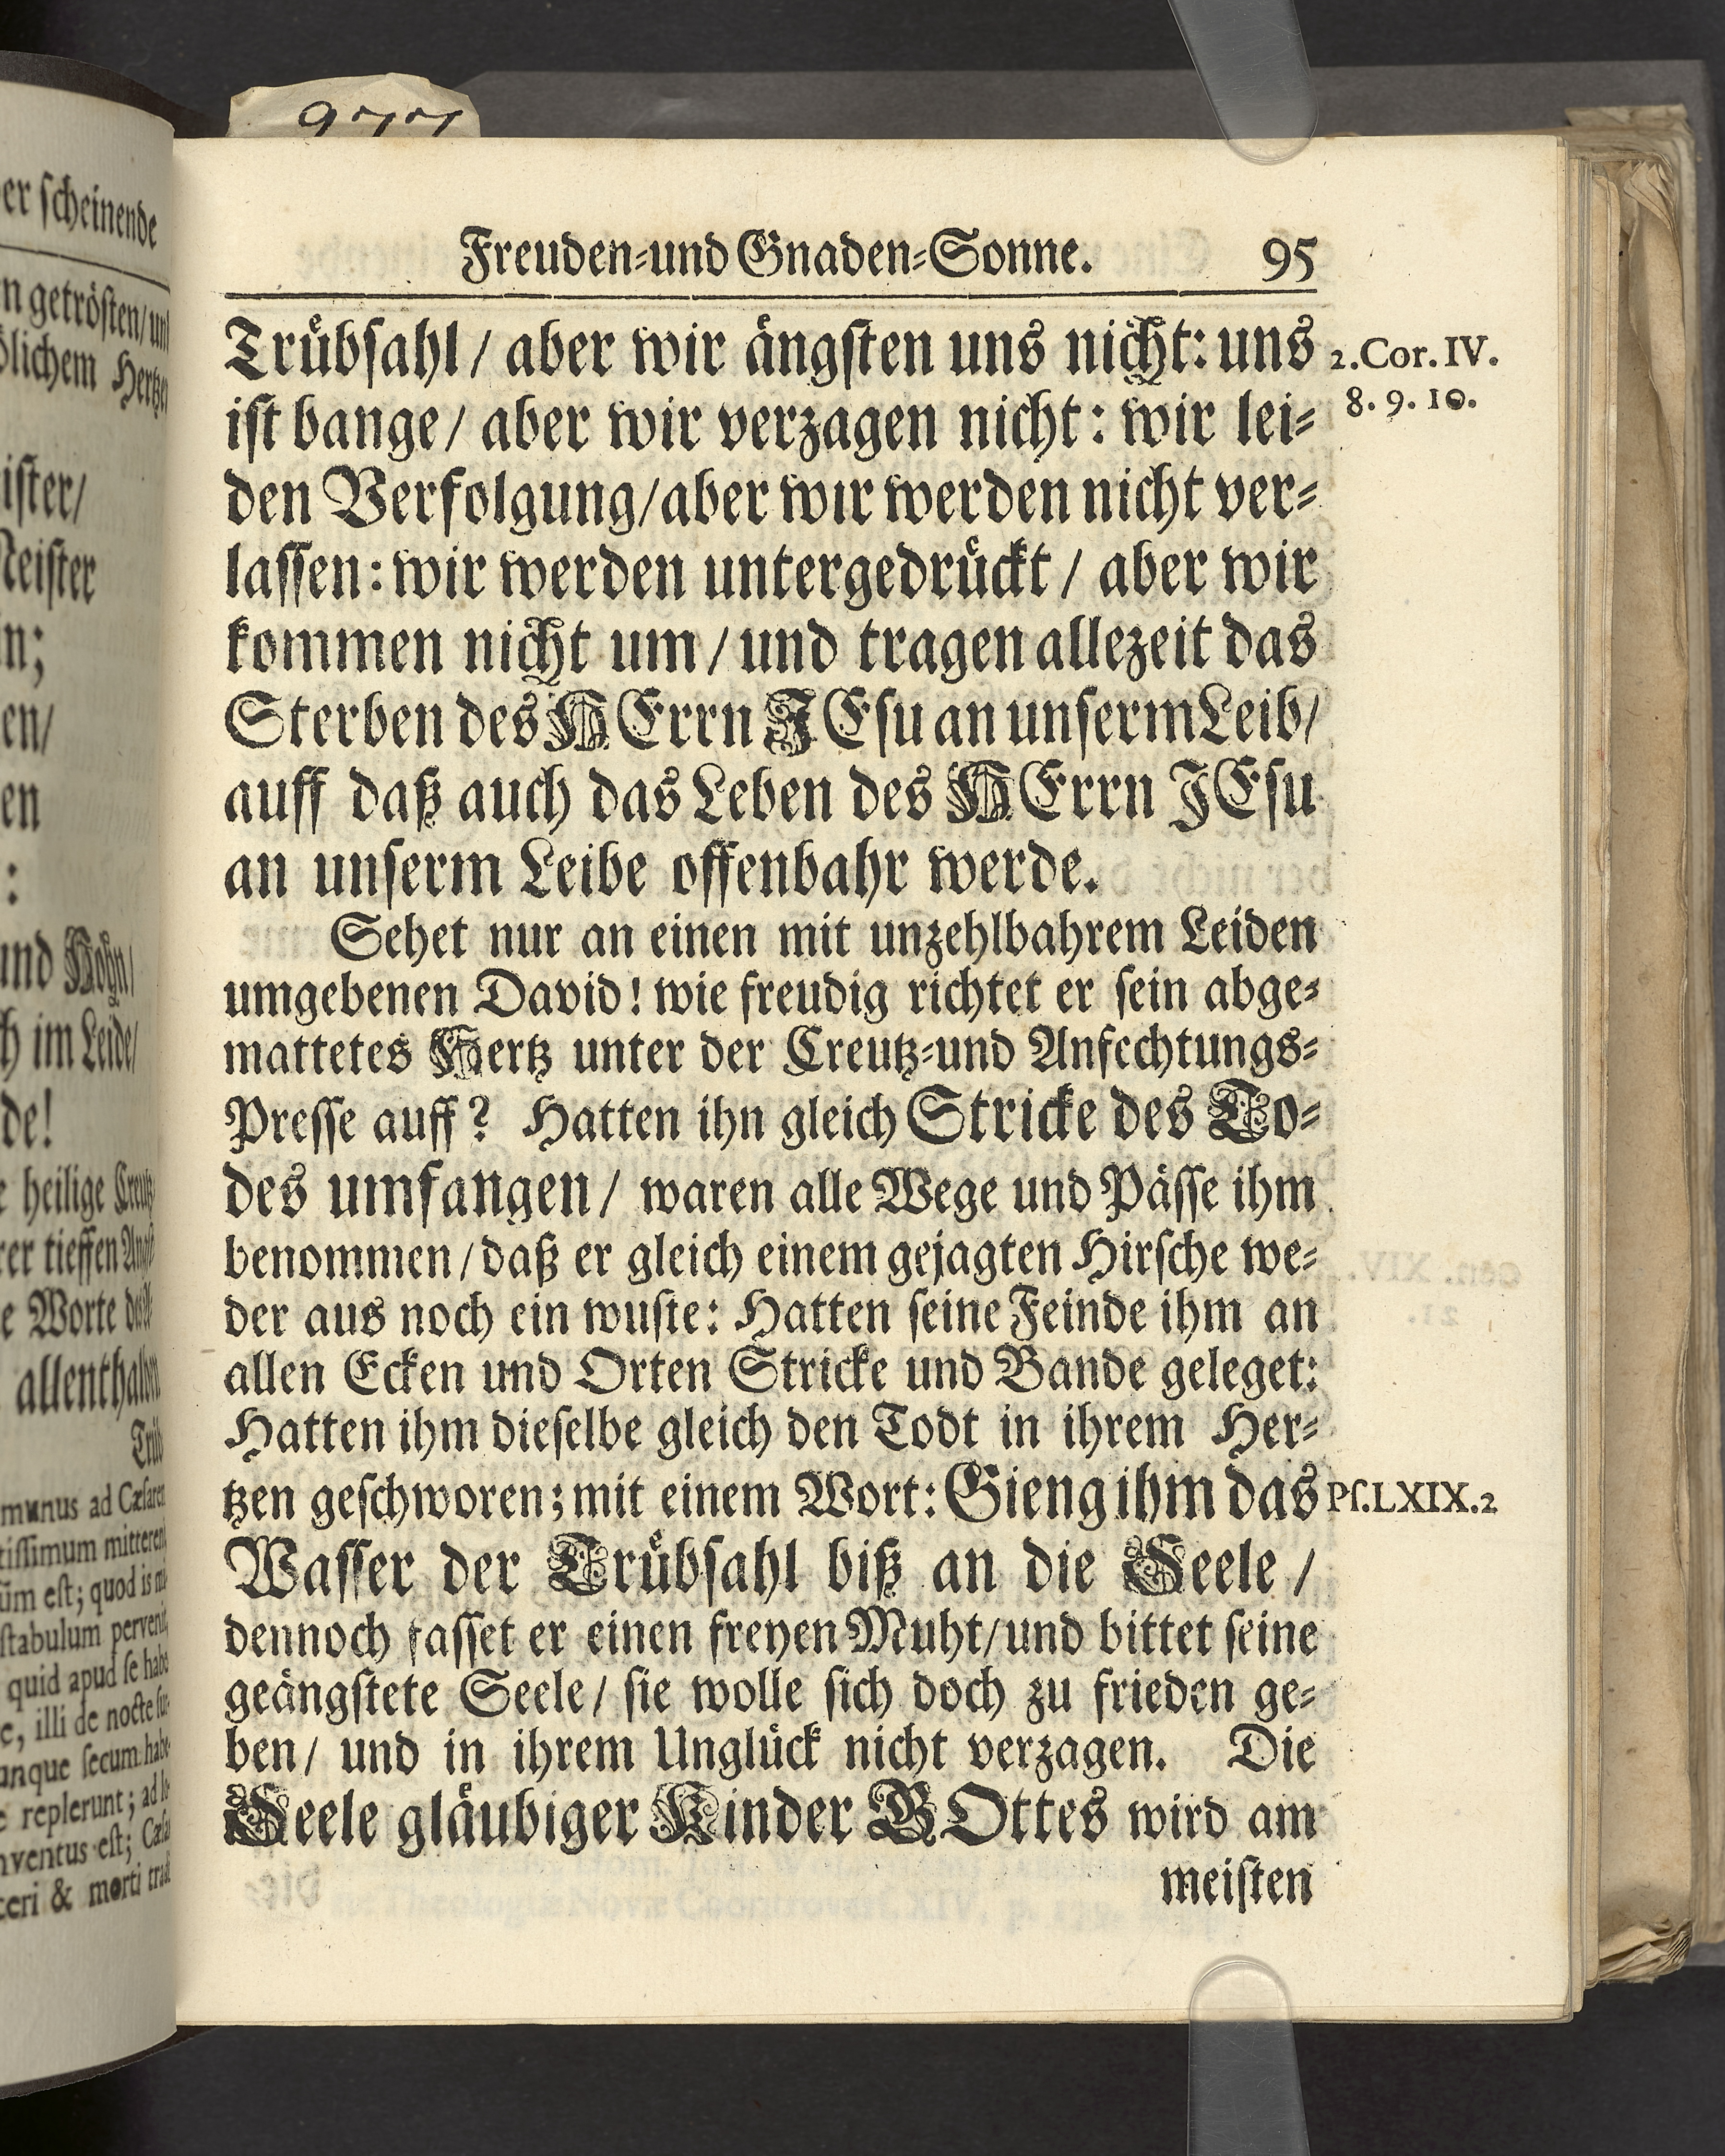 er scheinende
n getrösten/und
ölichem Hertzen
ister/
Meister
n;
en/
en
:
und Hohn/
h im Leide/
de!
e heilige Creutz
rer tieffen Angst
e Worte
allenthalben
Trüb
munus ad Cæsarem
tissimum mitteren
ùm est; quod is
stabulum pervenit
quid apud se habe
e, illi de nocte sur-
unque secum habe
e replerunt; ad
nventus est; Cæsa
ceri & morti trad
Freuden-und Gnaden-Sonne. 95
Trübsahl / aber wir ängsten uns nicht: uns
2.Cor. IV.
ist bange/ aber wir verzagen nicht: wir lei-
8. 9. 10.
den Verfolgung/aber wir werden nicht ver-
lassen: wir werden untergedrückt / aber wir
kommen nicht um / und tragen allezeit das
Sterben des HErrn JEsu an unserm Leib/
auff daß auch das Leben des HErrn JEsu
an unserm Leibe offenbahr werde.
Sehet nur an einen mit unzehlbahrem Leiden
umgebenen David! wie freudig richtet er sein abge-
mattetes Hertz unter der Creutz-und Anfechtungs-
Presse auff? Hatten ihn gleich Stricke des To-
des umfangen/ waren alle Wege und Pässe ihm
benommen/daß er gleich einem gejagten Hirsche we-
der aus noch ein wuste: Hatten seine Feinde ihm an
allen Ecken und Orten Stricke und Bande geleget:
Hatten ihm dieselbe gleich den Todt in ihrem Her-
tzen geschworen; mit einem Wort: Gieng ihm das
Ps.LXIX.2
Wasser der Trübsahl biß an die Seele /
dennoch fasset er einen freyen Muht/und bittet seine
geängstete Seele/ sie wolle sich doch zu frieden ge-
ben/ und in ihrem Unglück nicht verzagen. Die
Seele gläubiger Kinder GOttes wird am
meisten